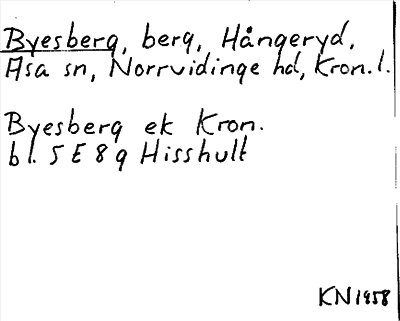 Byesberg, berg, Hångeryd,
Asa sn, Norrvidinge hd, Kron. l.
Byesberg ek Kron.
bl. 5 E 8 g Hisshult
KN 1958